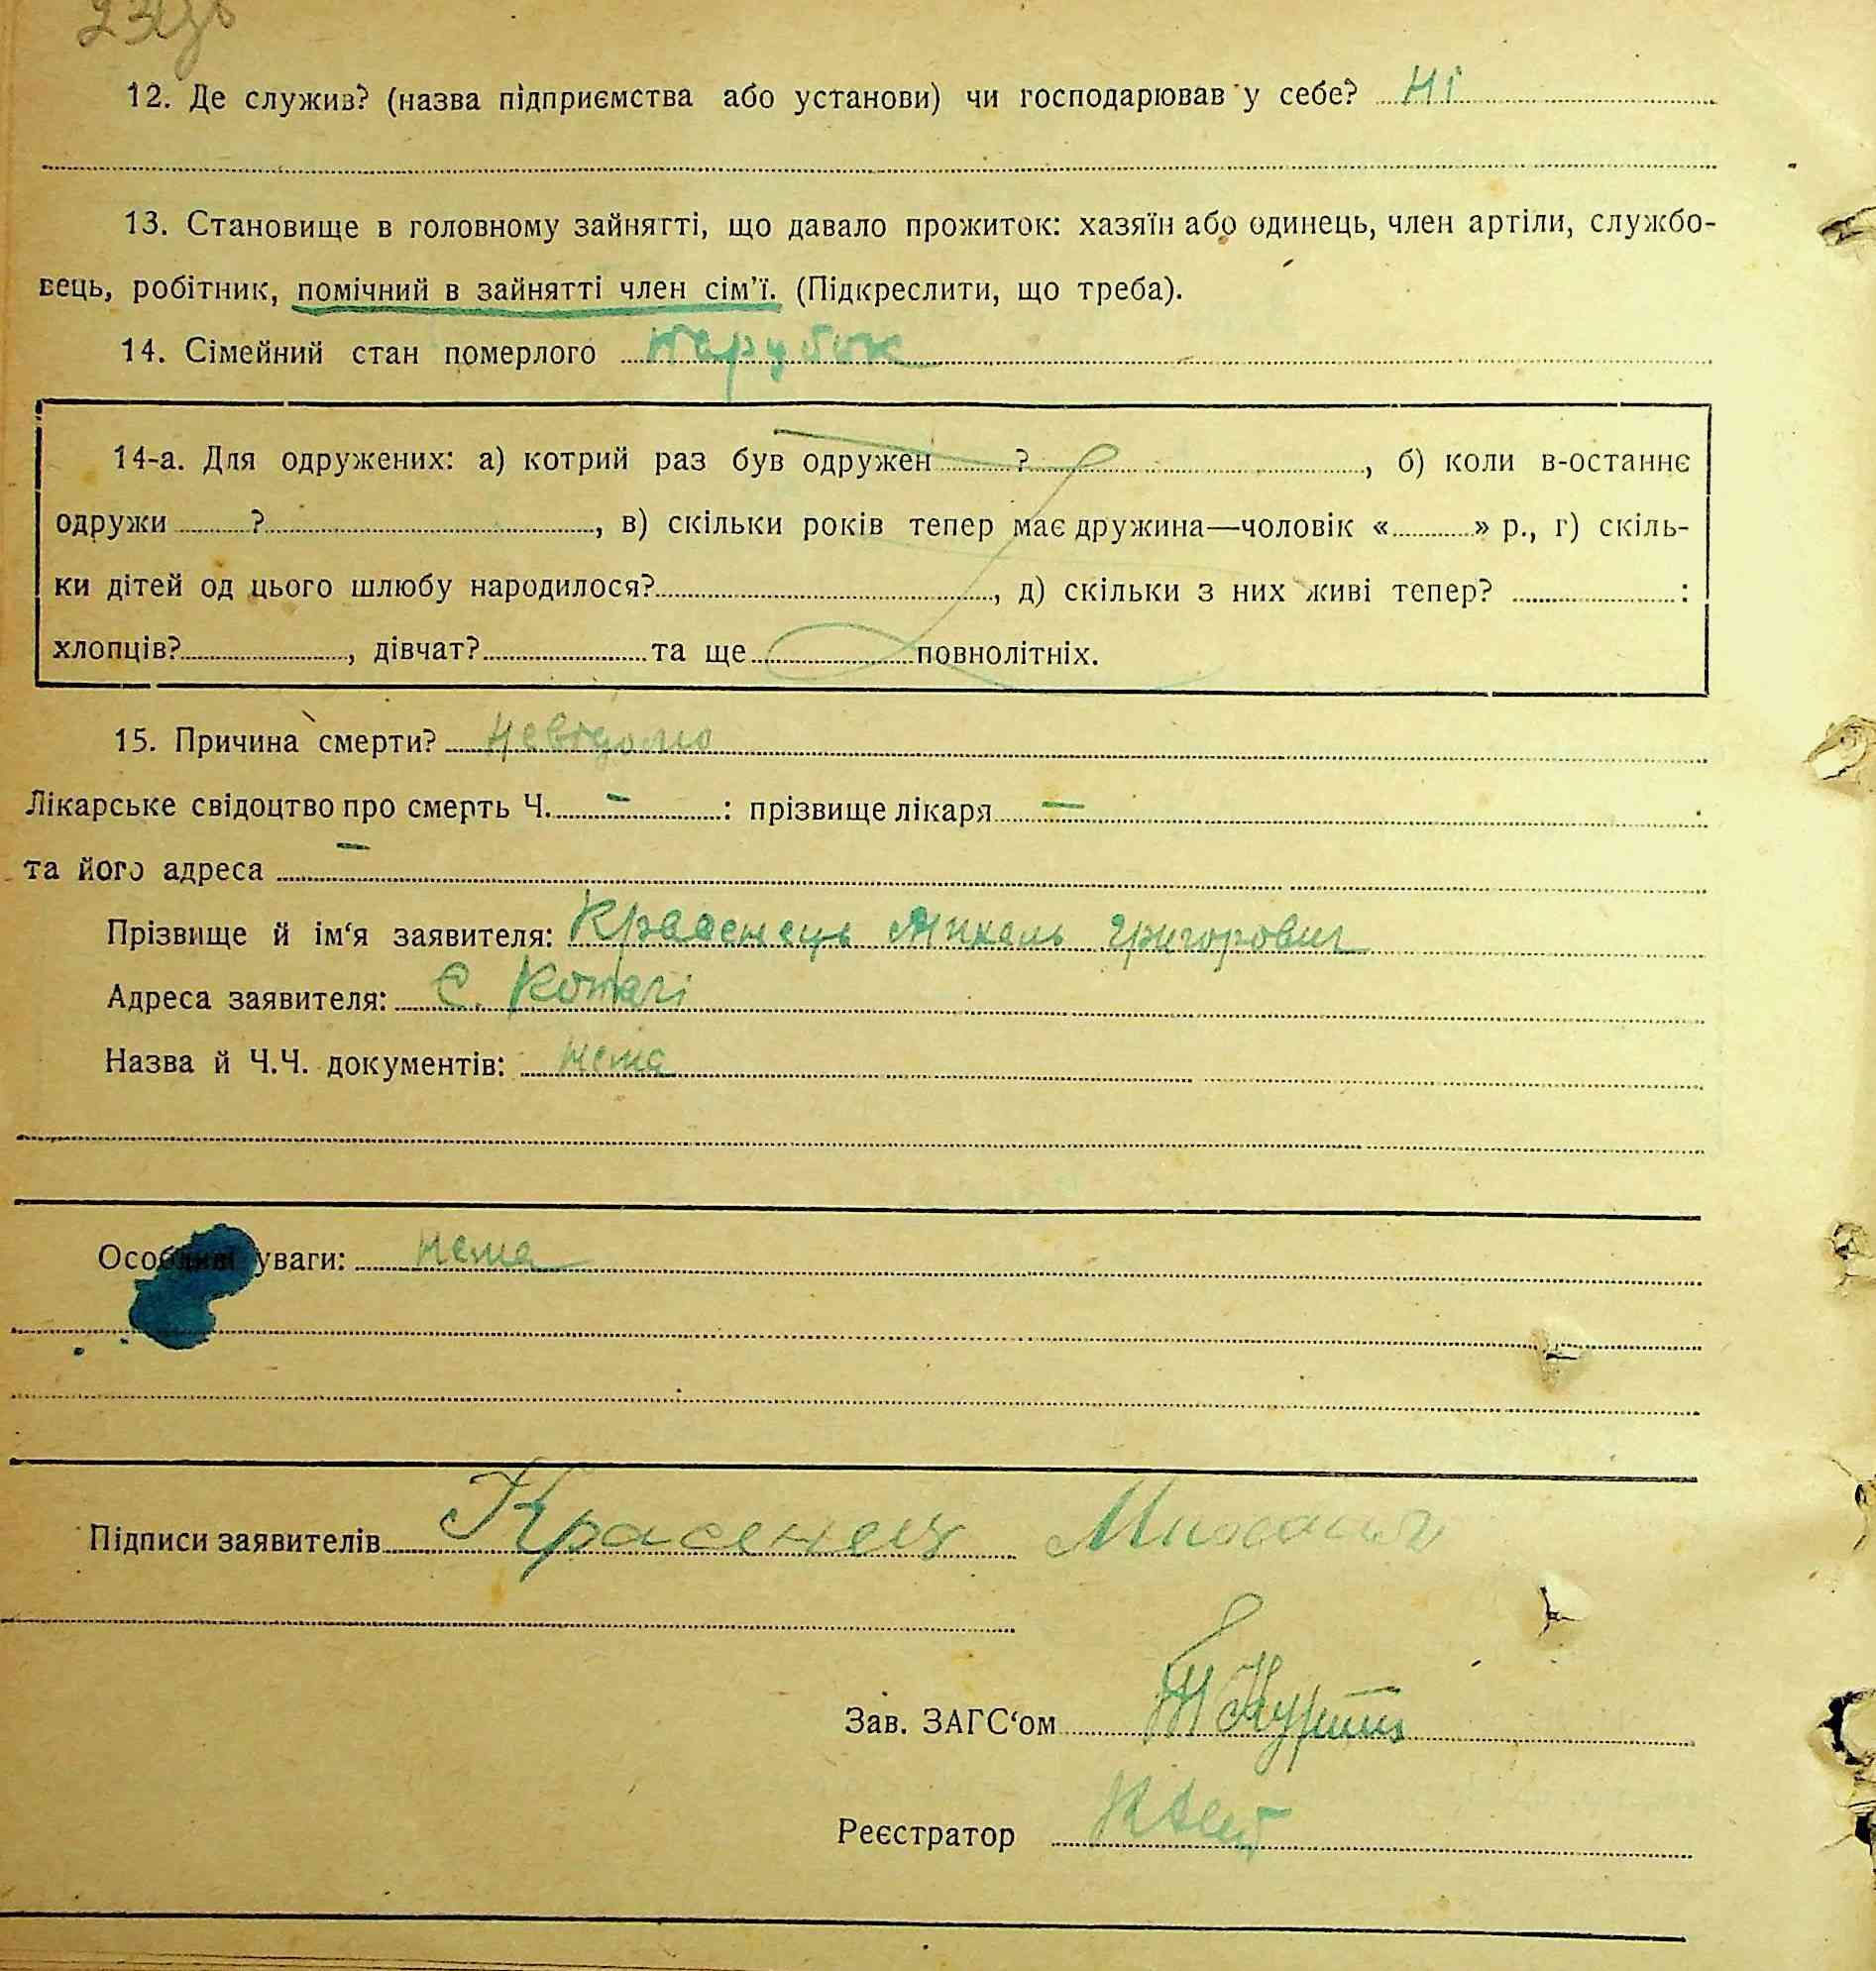 12. Де служив? (назва підприємства або установи) чи господарював у себе? Ні
13. Становище в головному зайнятті, що давало прожиток: хазяїн або одинець, член артіли, службо-
вець, робітник, помічний в зайнятті член сім'ї. (Підкреслити, що треба).
14. Сімейний стан померлого парубок
14-а. Для одружених: а) котрий раз був одружен ? , б) коли в-останнє
одружи ? , в) скільки років тепер має дружина—чоловік « » р., г) скіль-
ки дітей од цього шлюбу народилося? , д) скільки з них живі тепер? :
хлопців? , дівчат? та ще повнолітніх.
15. Причина смерти? Невідомо
Лікарське свідоцтво про смерть Ч. – : прізвище лікаря –
та його адреса –
Прізвище й ім'я заявителя: Григорович
Адреса заявителя: С.
Назва й Ч.Ч. документів: нема
Особливі уваги: нема
Підписи заявителів Красенець
Зав. ЗАГС'ом
Реєстратор